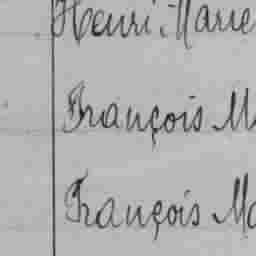 Henri Marie
François M
François Ma